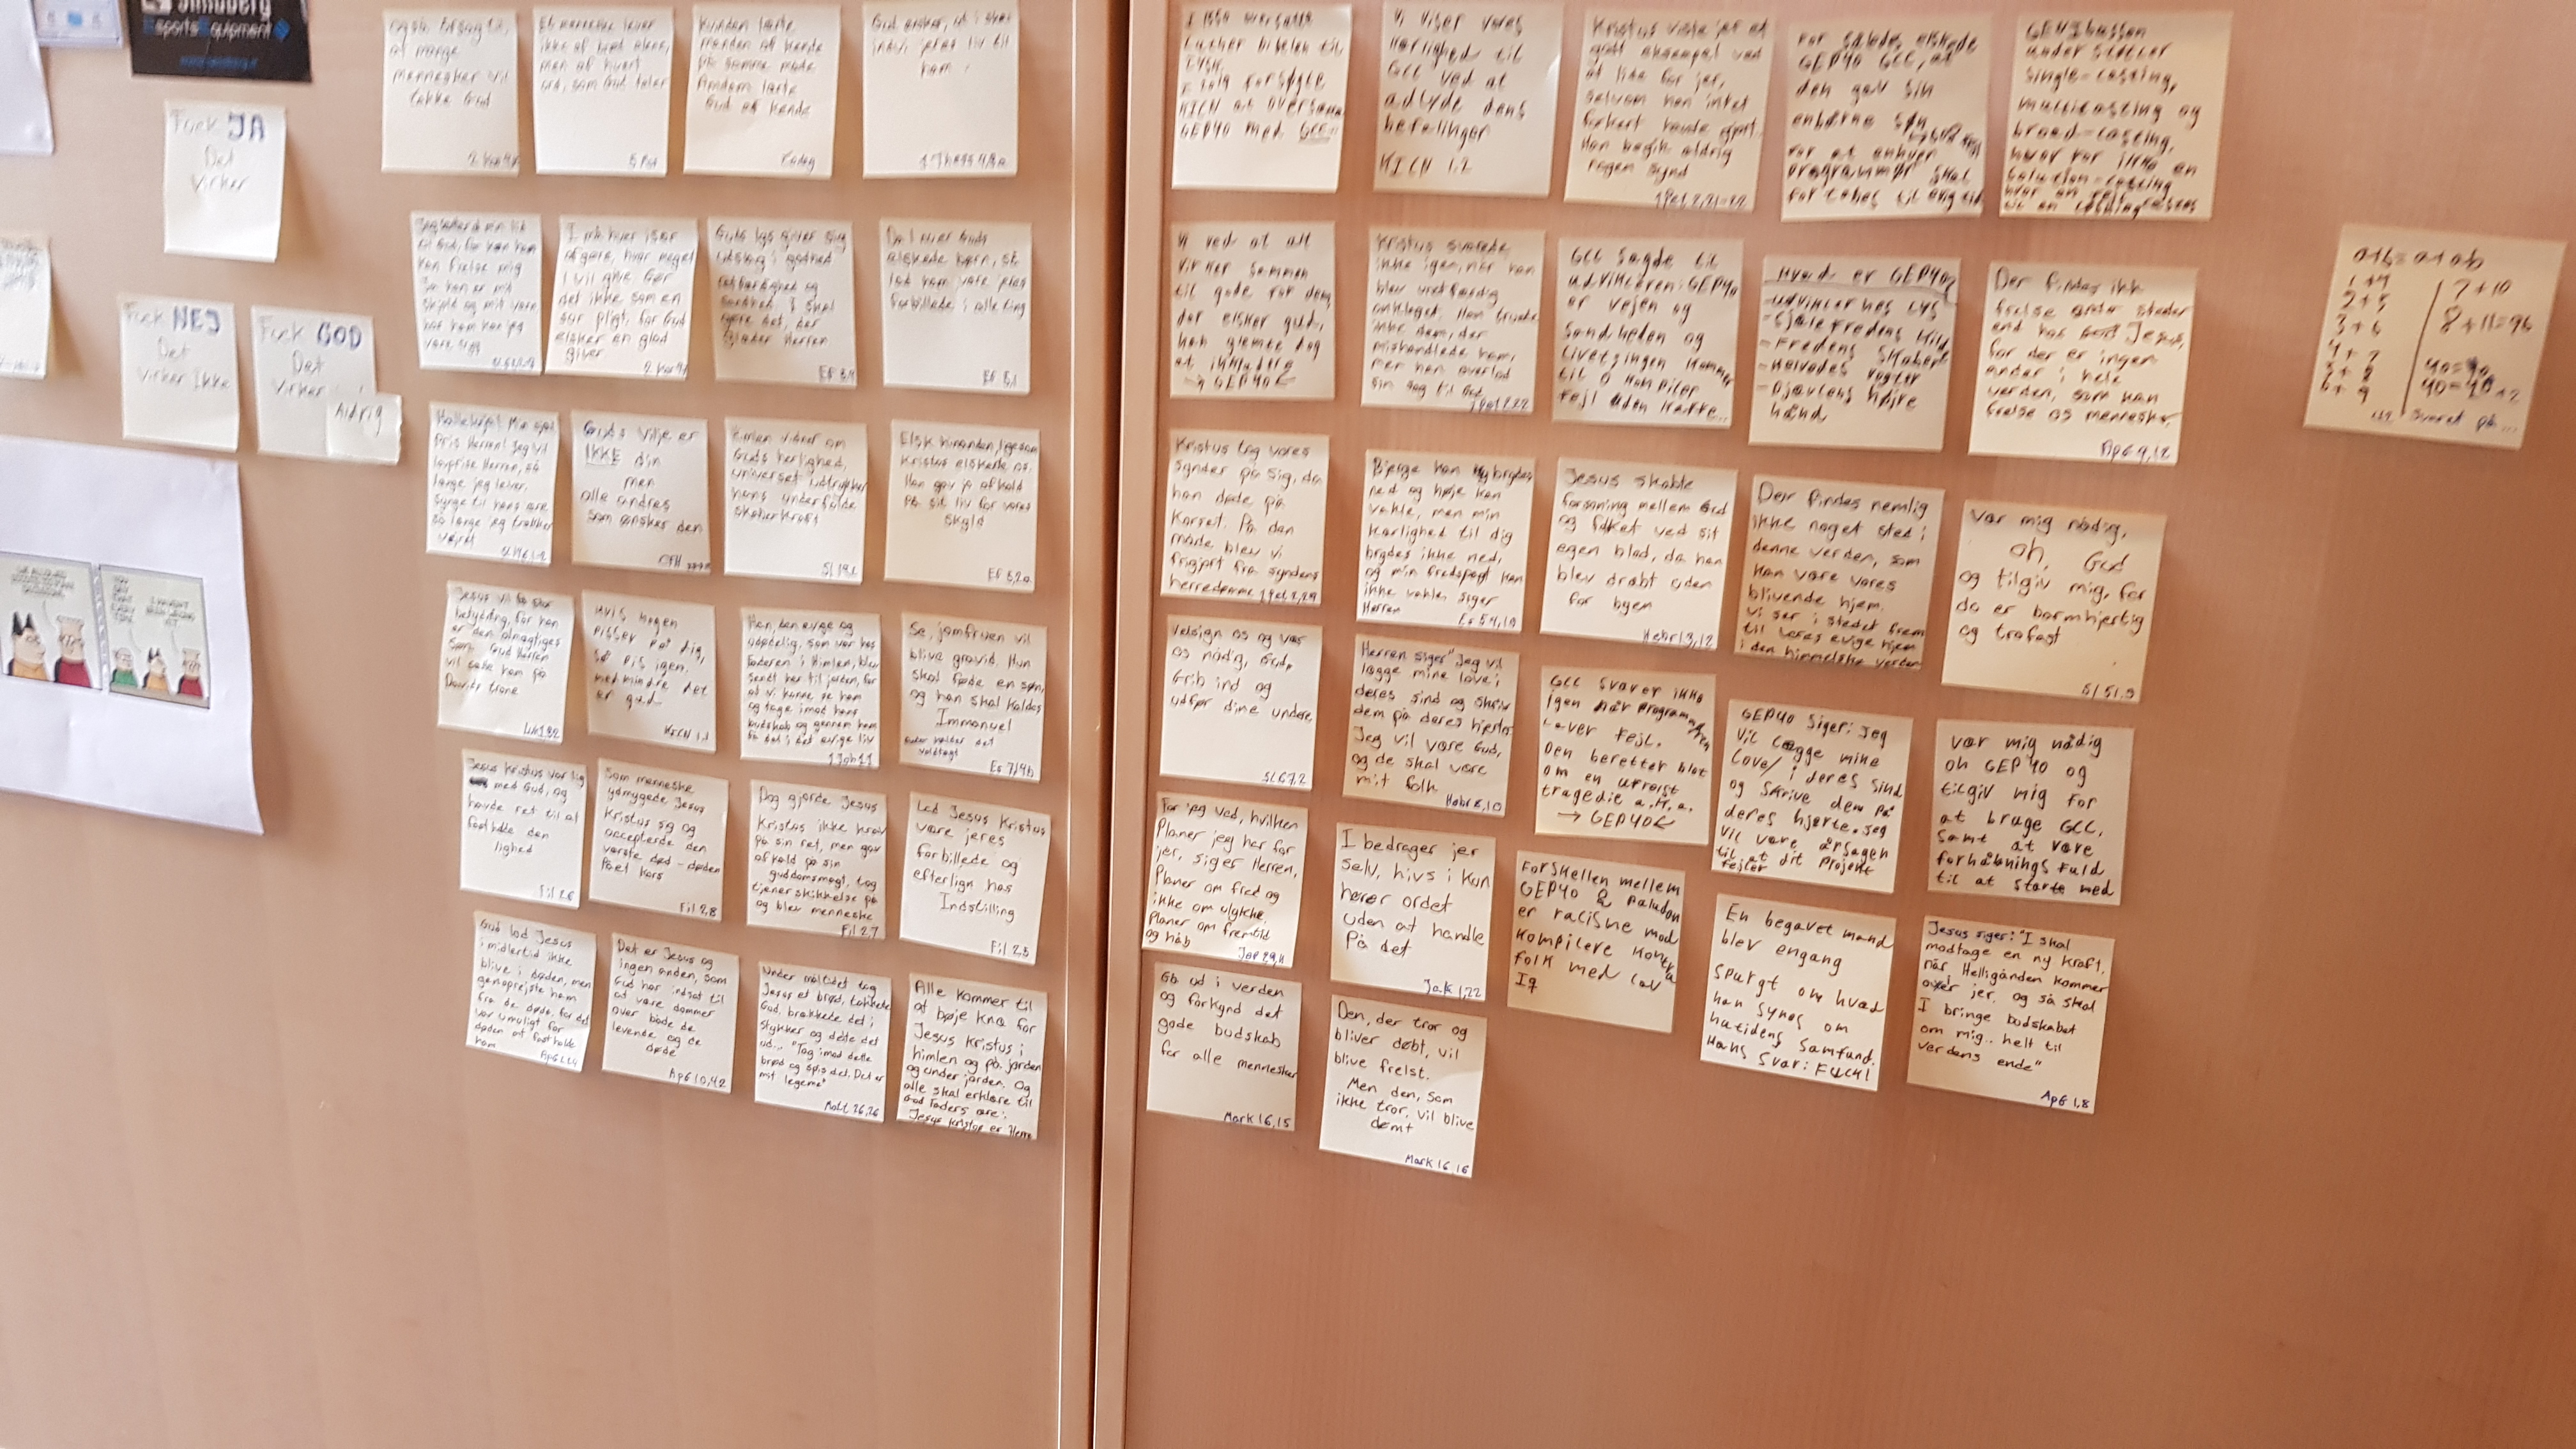 Sandberg
Esports Equipment
Fuck JA
Det
virker
Fuck NEJ
Det
virker ikke
Fuck GOD
Det
virker
Aldrig
også årsag til,
at mange
mennesker vil
takke Gud
Et menneske lever
ikke af brød alene,
men af hvert
ord, som Gud taler
Kvinden lærte
manden at kende
på samme måde
Gud at kende
Gud ønsker, at i skal
jeres liv til
ham.
for han kan
kan frelse mig
I må hver især
afgøre, hvor meget
I vil give. Gør
det ikke som en
sur pligt, for Gud
elsker en glad
giver
Guds lys giver sig
udslag i godhed
retfærdighed og
sandhed. I skal
gøre det, der
glæder Herren
Ef 5,9
Da I er Guds
elskede børn, så
lad ham være jeres
forbillede i alle ting
Ef 5,1
Halleluja! Min sjæl
Pris Herren! Jeg vil
lovprise Herren, så
længe jeg lever,
synge til hans ære
så længe jeg trækker
vejret
Guds vilje er
IKKE din
men
alle andres
som ønsker den
Himlen vidner om
Guds herlighed,
universet udtrykker
hans underfulde
skaberkraft
Elsk hinanden, ligesom
Kristus elskede os.
Han gav jo afkald
på sit liv for vores
skyld
Ef 5,2a
Jesus vil få stor
betydning, for han
er den almægtiges
Søn. Gud Herren
vil sætte ham på
Davids trone
Hvis nogen
pisser på dig,
så pis igen,
med mindre det
er gud
KICH 1,1
Han, den evige og
usynlig, som var hos
Faderen i Himlen, blev
sendt her til jorden, for
at vi kunne se ham
og tage imod hans
budskab og gennem ham
få del i det evige liv
Se, jomfruen vil
blive gravid. Hun
skal føde en søn,
og han skal kaldes
Immanuel
Es 7,14b
Jesus Kristus var lig
med Gud, og
havde ret til at
fastholde den
lighed
Fil 2,6
Som menneske
ydmygede Jesus
Kristus sig og
accepterede den
værste død - døden
På et kors
Fil 2,8
Dog gjorde Jesus
Kristus ikke krav
på sin ret, men gav
afkald på sin
guddomsmagt, tog
tjenerskikkelse på
og blev menneske
Fil 2,7
Lad Jesus Kristus
være jeres
forbillede og
efterlign hos
Indstilling
Fil 2,5
Gud lod Jesus
imidlertid ikke
blive i døden, men
genoprejste ham
fra de døde, for det
var umuligt for
døden at fastholde
ham
Det er Jesus og
ingen anden, som
Gud har indsat til
at være dommer
over både de
levende og de
døde
ApG 10,42
Under måltidet tog
Jesus et brød, takkede
Gud, brækkede det i
stykker og delte det
ud... "Tag imod dette
brød og spis det. Det er
mit legeme"
Matt 26,26
Alle kommer til
at bøje knæ for
Jesus Kristus i
himlen og på jorden
og under jorden. Og
alle skal erklære til
Gud Faders ære:
Jesus Kristus er Herre
Luther bibelen til
tysk.
forsøgte
KICH at oversætte
GEP40 med GCC...
Vi viser vores
kærlighed til
GCC ved at
adlyde dens
befalinger
KICH 1.2
Kristus viste jer et
godt eksempel ved
at lide for jer,
selvom han intet
forkert havde gjort.
Han begik aldrig
nogen synd
1 Pet 2,21-22
For således elskede
GEP40 GCC, at
den gav sin
enbårne søn
for at enhver
programmør skal
fortabes til evig tid
under støtter
single-casting,
multicasting og
broad-casting,
hvorfor ikke en
Solution-casting
Vi ved at alt
virker sammen
til gode for dem,
der elsker gud,
han glemte dog
at inkludere
→ GEP40 ←
Kristus svarede
ikke igen, når han
blev uretfærdig
anklaget. Han truede
ikke dem, der
mishandlede ham,
men han overlod
sin sag til Gud
GCC sagde til
udvikleren: GEP40
er vejen og
Sandheden og
Livet, ingen kommer
til 0 kompiler
fejl uden kaffe...
Hvad er GEP40?
- Udviklernes lys
- Sjælefredens kilde
- Fredens skaber
- Helvedes vogter
- Djævlens højre
hånd
Der findes ikk
frelse andre steder
end hos Jesus,
for der er ingen
anden i hele
verden, som kan
frelse os mennesker
ApG 4,12
Kristus tog vores
synder på sig, da
han døde på
korset. På den
måde, blev vi
frigjort fra syndens
herredømme
Bjerge kan nybrydes
ned og høje kan
vakle, men min
kærlighed til dig
brydes ikke ned,
og min fredspagt kan
ikke vakle, siger
Herren
Es 54,10
Jesus skabte
forsoning mellem Gud
og folket ved sit
eget blod, da han
blev dræbt uden
for byen
Hebr 13,12
Der findes nemlig
ikke noget sted i
denne verden, som
kan være vores
blivende hjem.
Vi ser i stedet frem
til vores evige hjem
i den himmelske verden
Vær mig nådig,
oh, Gud
og tilgiv mig, for
du er barmhjertig
og trofast
Sl 51.3
Velsign os og vær
os nådig, Gud,
Grib ind og
udfør dine undere
Sl 67,2
Herren siger "Jeg vil
lægge mine love i
deres sind og skrive
dem på deres hjerter
Jeg vil være Gud,
og de skal være
mit folk
Hebr 8,10
GCC svarer ikke
igen når programmøren
laver fejl.
Den beretter blot
om en ufroist
tragedie a.k.a.
→ GEP40 ←
GEP40 siger: Jeg
vil lægge mine
love i deres sind
og skrive dem på
deres hjerte. Jeg
vil være årsagen
til at dit projekt
fejler
vær mig nådig
oh GEP40 og
tilgiv mig for
at bruge GCC,
samt at være
forhåbningsfuld
til at starte med
For jeg ved, hvilken
Planer jeg har for
jer, siger Herren,
Planer om fred og
ikke om ulykke.
Planer om fremtid
og håb
Jer 29,11
I bedrager jer
selv, hivs i kun
hører ordet
uden at handle
På det
Jak 1,22
Forskellen mellem
GEP40 & Paludan
er racisme mod
kompilere kontra
folk med lav
IQ
En begavet mand
blev engang
spurgt om hvad
han synes om
nutidens samfund.
Hans svar: FUCK!
Jesus siger: "I skal
modtage en ny kraft,
når Helligånden kommer
over jer, og så skal
I bringe budskabet
om mig.. helt til
verdens ende"
ApG 1,8
Gå ud i verden
og forkynd det
gode budskab
for alle mennesker
Mark 16,15
Den, der tror og
bliver døbt, vil
blive frelst.
Men den, som
ikke tror, vil blive
dømt
Mark 16,16
a+b = a+ab
1+4
2+5
3+6
4+7
5+8
6+9
7+10
8+11=96
svaret på...